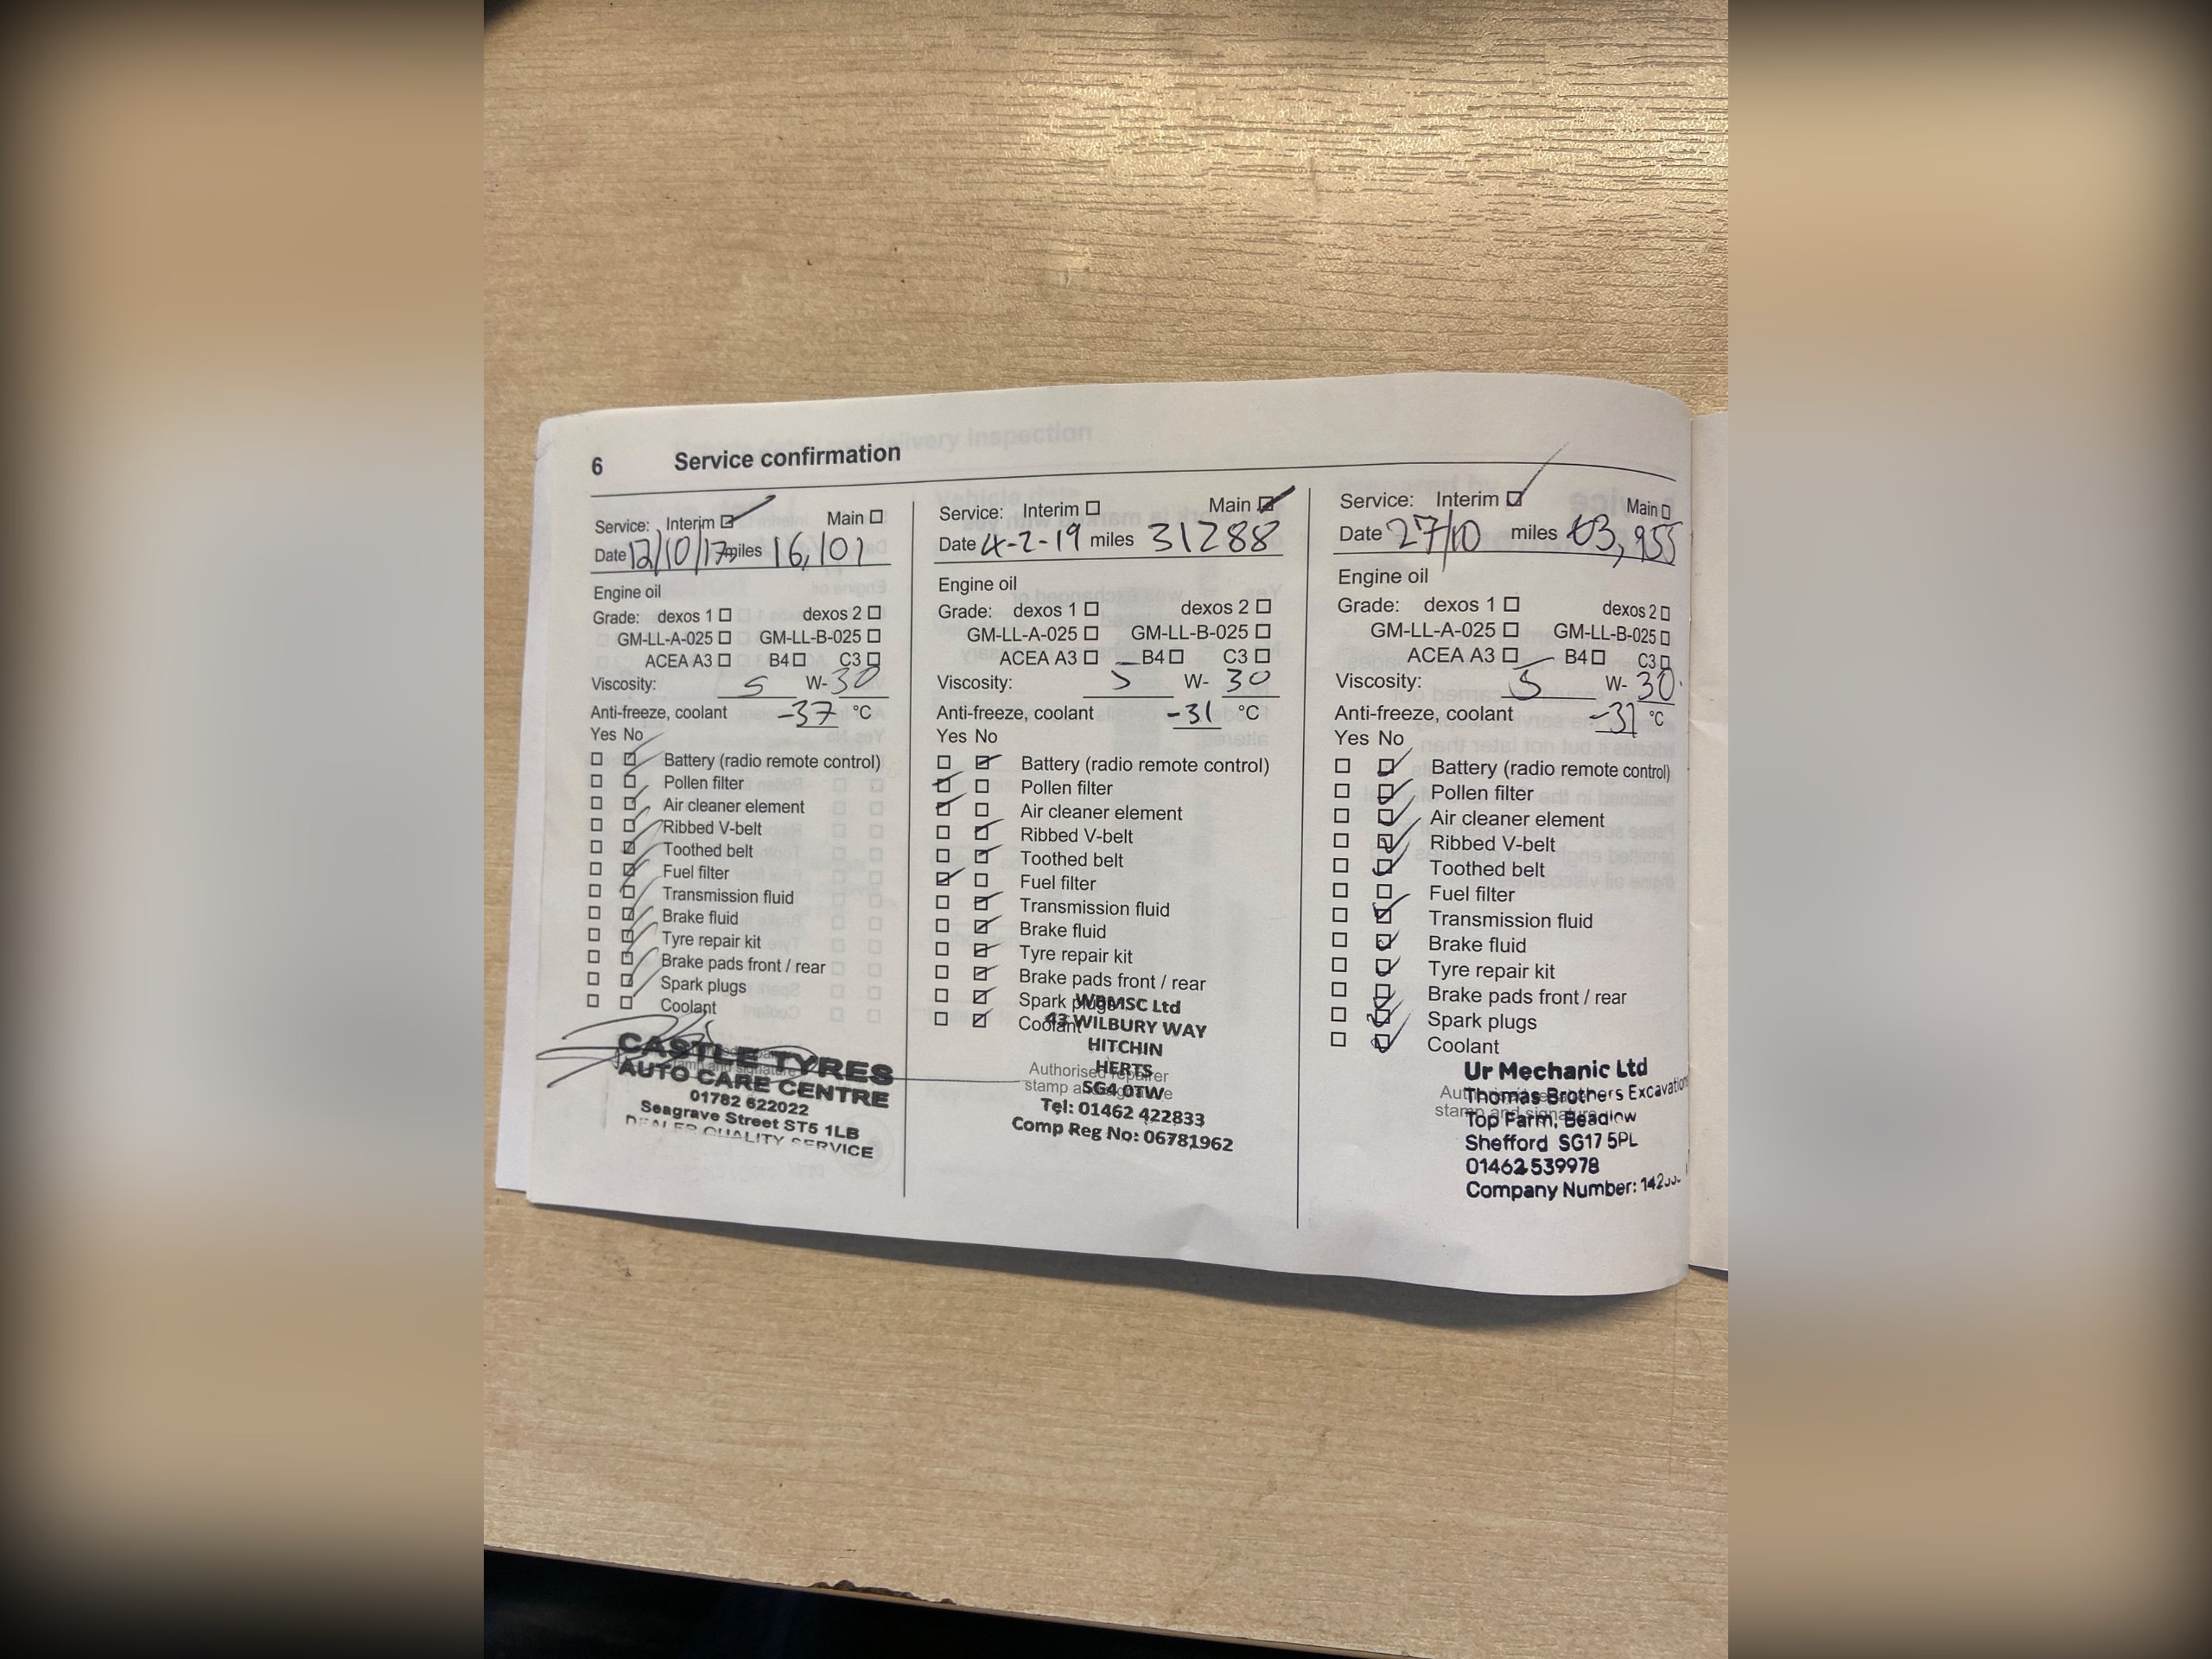 6 Service confirmation
Service: Interim Main
Date 12/10/17 miles 16,101
Engine oil
Grade: dexos 1 dexos 2
GM-LL-A-025 GM-LL-B-025
ACEA A3 B4 C3
Viscosity: 5 W- 30
Anti-freeze, coolant -37 °C
Yes No
Battery (radio remote control)
Pollen filter
Air cleaner element
Ribbed V-belt
Toothed belt
Fuel filter
Transmission fluid
Brake fluid
Tyre repair kit
Brake pads front / rear
Spark plugs
Coolant
CASTLE TYRES
AUTO CARE CENTRE
01782 622022
Seagrave Street ST5 1LB
DEALER QUALITY SERVICE
Service: Interim Main
Date 4-2-19 miles 31288
Engine oil
Grade: dexos 1 dexos 2
GM-LL-A-025 GM-LL-B-025
ACEA A3 B4 C3
Viscosity: 5 W- 30
Anti-freeze, coolant -31 °C
Yes No
Battery (radio remote control)
Pollen filter
Air cleaner element
Ribbed V-belt
Toothed belt
Fuel filter
Transmission fluid
Brake fluid
Tyre repair kit
Brake pads front / rear
Spark plugs
Coolant
WBMSC Ltd
43 WILBURY WAY
HITCHIN
HERTS
SG4 0TW
Tel: 01462 422833
Comp Reg No: 06781962
Authorised repairer
stamp and signature
Service: Interim Main
Date 27/10 miles 955
Engine oil
Grade: dexos 1 dexos 2
GM-LL-A-025 GM-LL-B-025
ACEA A3 B4 C3
Viscosity: 5 W- 30
Anti-freeze, coolant -31 °C
Yes No
Battery (radio remote control)
Pollen filter
Air cleaner element
Ribbed V-belt
Toothed belt
Fuel filter
Transmission fluid
Brake fluid
Tyre repair kit
Brake pads front / rear
Spark plugs
Coolant
Ur Mechanic Ltd
Thomas Brothers Excavation
Top Farm, Beadlow
Shefford SG17 5PL
01462 539978
Company Number:
stamp and signature